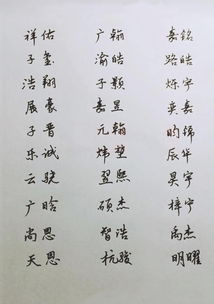 祥佑 广翰 嘉铭
子玺 渝皓 路皓
浩翔 子颢 烁宇
展豪 嘉昱 奕嘉
子晋 元翰 昀锦
乐诚 炜堃 辰华
云骁 翌熙 昊宇
广晗 硕杰 梓宇
尚恩 智浩 禹杰
天恩 杭骏 明曜